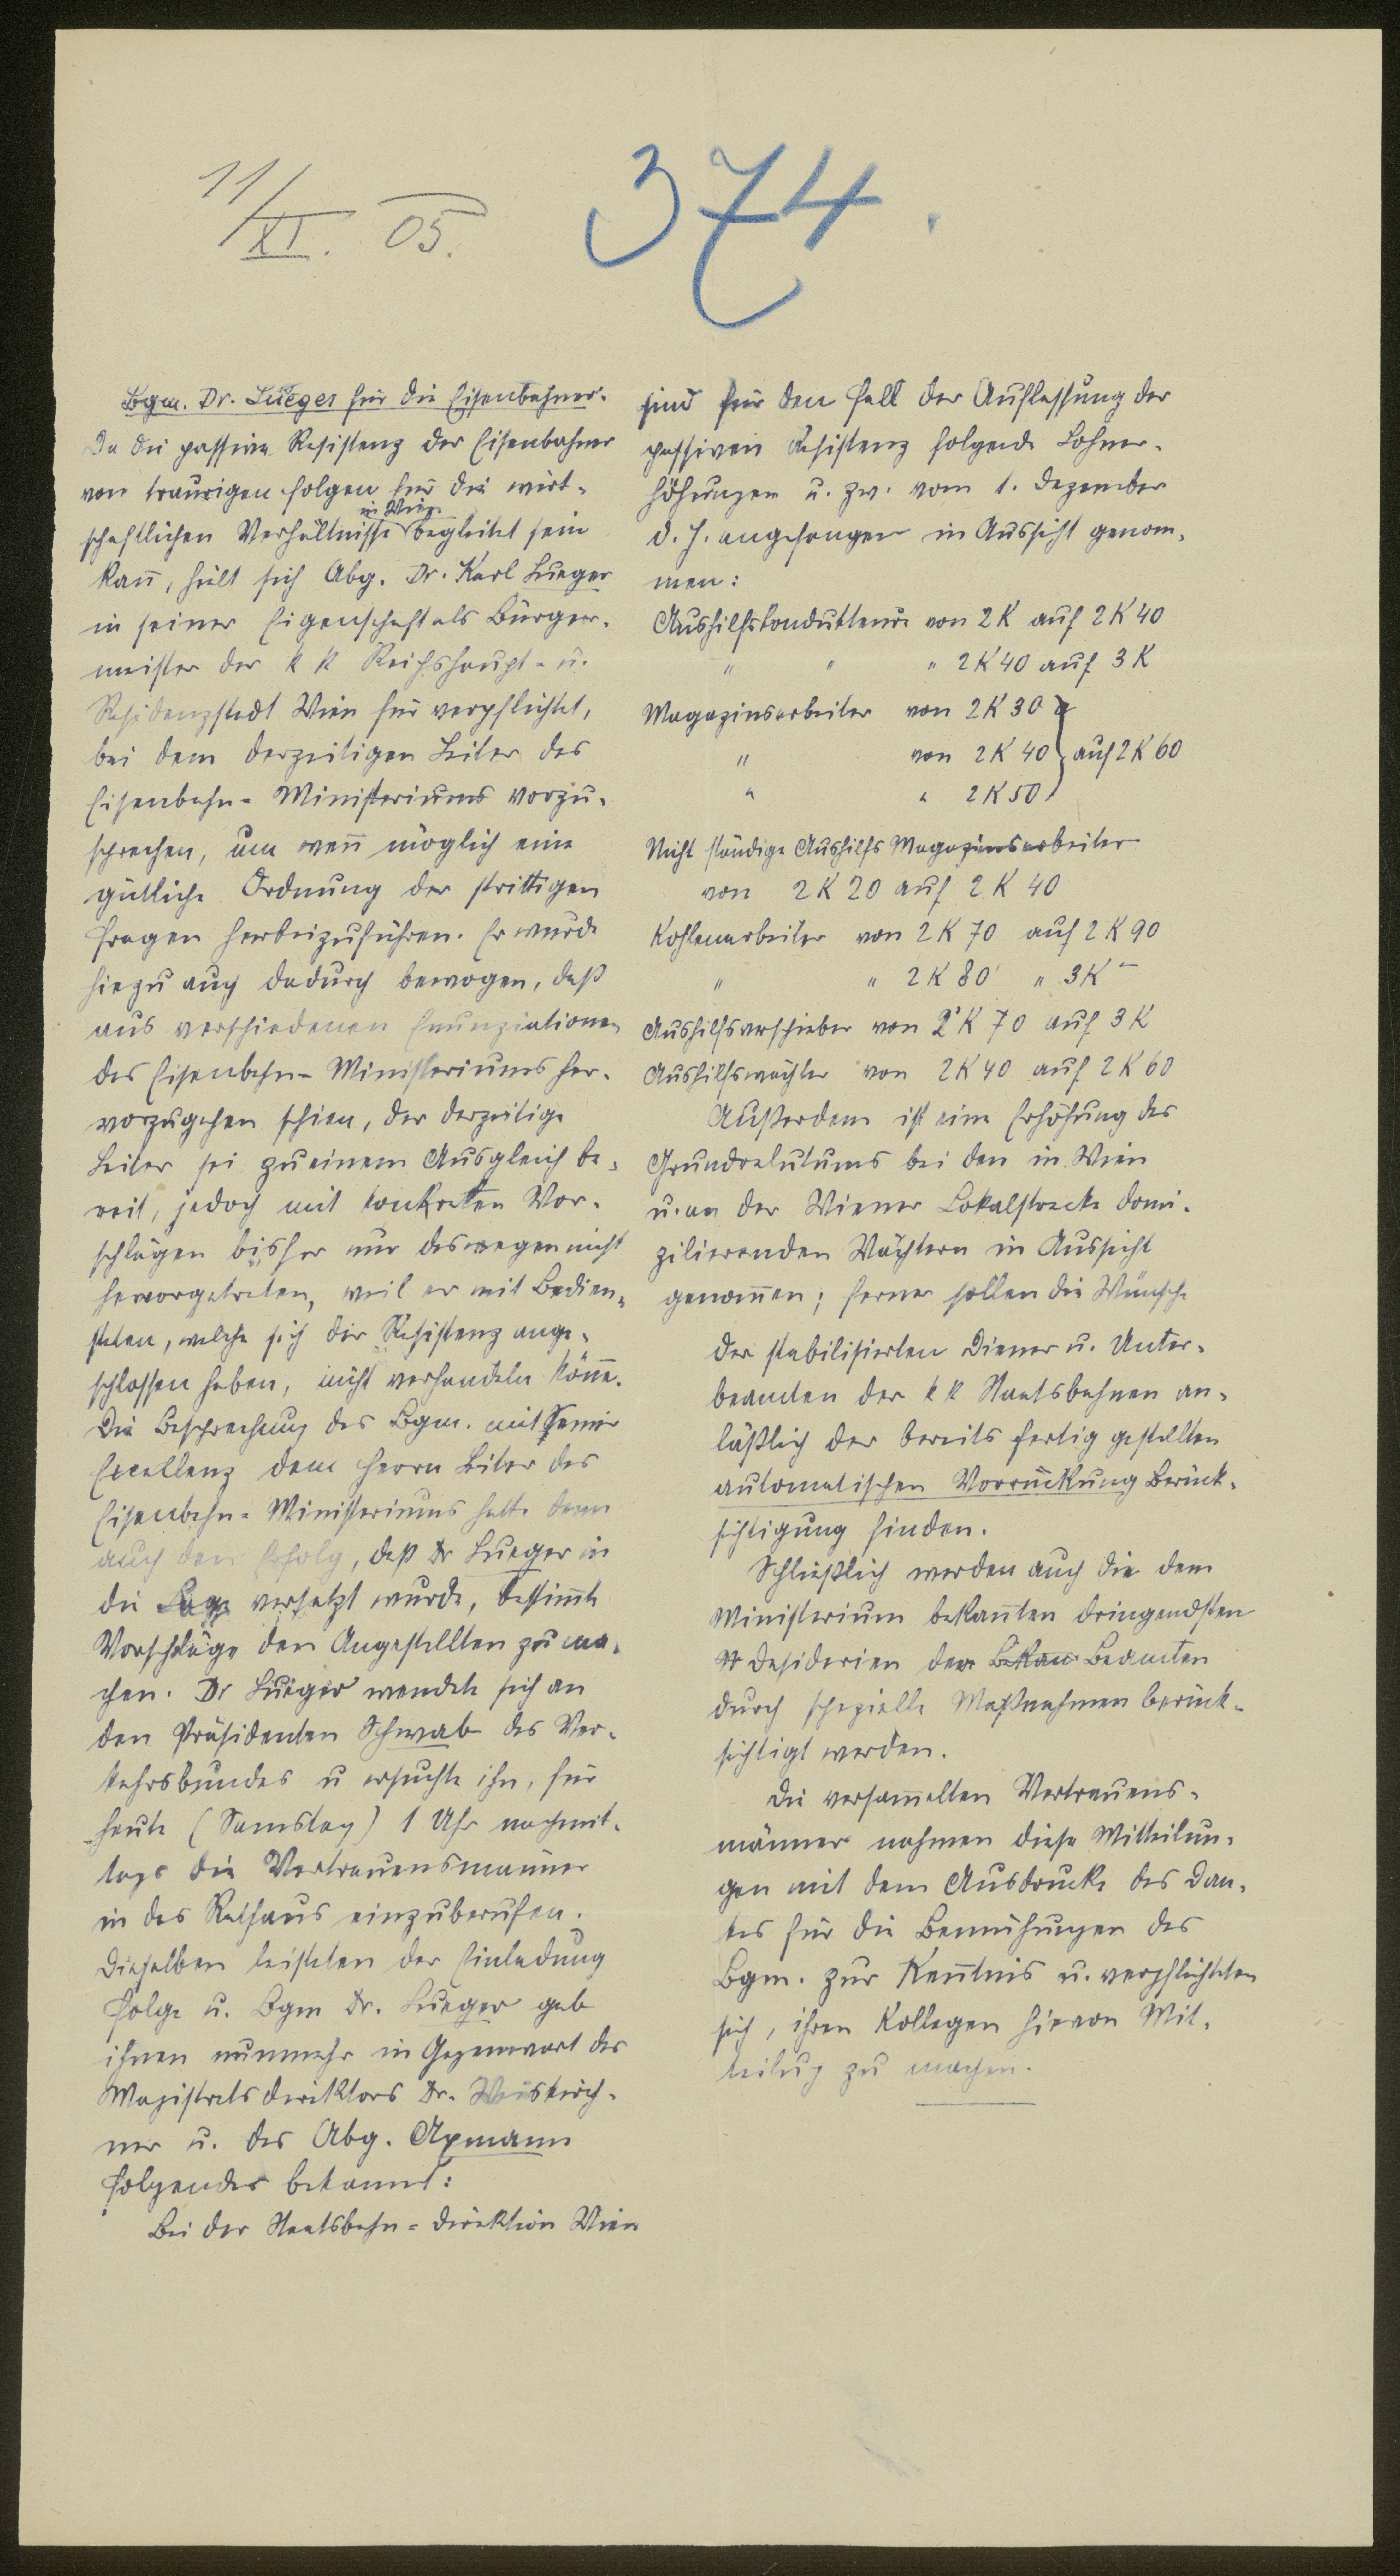 11/XI. 05.
374.
Bgm. Dr. Lueger für die Eisenbahner.
Da die passive Resistenz der Eisenbahner
von traurigen Folgen für die wirt-
schaftlichen Verhältnisse in Wien begleitet sein
kann̄, hält sich Abg. Dr. Karl Lueger
in seiner Eigenschaft als Bürger-
meister der k k Reichshaupt- u.
Residenzstadt Wien für verpflichtet,
bei dem derzeitigen Leiter des
Eisenbahn-Ministeriums vorzu-
sprechen, um wen̄ möglich eine
gütliche Ordnung der strittigen
Fragen herbeizuführen. Er wurde
hiezu auch dadurch bewogen, daß
aus verschiedenen Enunziationen
des Eisenbahn-Ministeriums her-
vorzugehen schien, der derzeitige
Leiter sei zu einem Ausgleich be-
reit, jedoch mit konkreten Vor-
schlägen bisher nur deswegen nicht
hervorgetreten, weil er mit Bedien-
steten, welche sich der Resistenz ange-
schlossen haben, nicht verhandeln kön̄e.
Die Besprechung des Bgm. mit Seiner
Excellenz dem Herrn Leiter des
Eisenbahn-Ministeriums hatte denn
auch den Erfolg, daß Dr Lueger in
die Lage versetzt wurde, bestim̄te
Vorschläge den Angestellten zu ma-
chen. Dr Lueger wendete sich an
den Präsidenten Schwab des Ver-
kehrsbundes u ersuchte ihn, für
heute (Samstag) 1 Uhr nachmit-
tags die Vertrauensmänner
in das Rathaus einzuberufen.
Dieselben leisteten der Einladung
Folge u. Bgm Dr. Lueger gab
ihnen nunmehr in Gegenwart des
Magistratsdirektors Dr. Weiskirch-
ner u. des Abg. Axmann
folgendes bekannt:
Bei der Staatsbahn-Direktion Wien
sind für den Fall der Auflassung der
passiven Resistenz folgende Lohner-
höhungen u. zw. vom 1. Dezember
d. J. angefangen in Aussicht genom-
men:
Aushilfskondukteure von 2 K auf 2 K 40
" " " 2 K 40 auf 3 K
Magazinsarbeiter von 2 K 30
" von 2 K 40 } auf 2 K 60
" " 2 K 50
Nicht ständige Aushilfs Magazinsarbeiter
von 2 K 20 auf 2 K 40
Kohlenarbeiter von 2 K 70 auf 2 K 90
" " 2 K 80 " 3 K –
Aushilfsverschieber von 2 K 70 auf 3 K
Aushilfswächter von 2 K 40 auf 2 K 60
Außerdem ist eine Erhöhung des
Grundrelutums bei den in Wien
u. an der Wiener Lokalstrecke domi-
zilierenden Wächtern in Aussicht
genom̄en; ferner sollen die Wünsche
der stabilisierten Diener u. Unter-
beamten der k k Staatsbahnen an-
läßlich der bereits fertig gestellten
automatischen Vorrückung Berück-
sichtigung finden.
Schließlich werden auch die dem
Ministerium bekan̄ten dringendsten
Desiderien der Beamten
durch spezielle Maßnahmen berück-
sichtigt werden.
Die versam̄elten Vertrauens-
männer nahmen diese Mitteilun-
gen mit dem Ausdrucke des Dan-
kes für die Bemühungen des
Bgm. zur Ken̄tnis u. verpflichteten
sich, ihren Kollegen hievon Mit-
teilung zu machen.